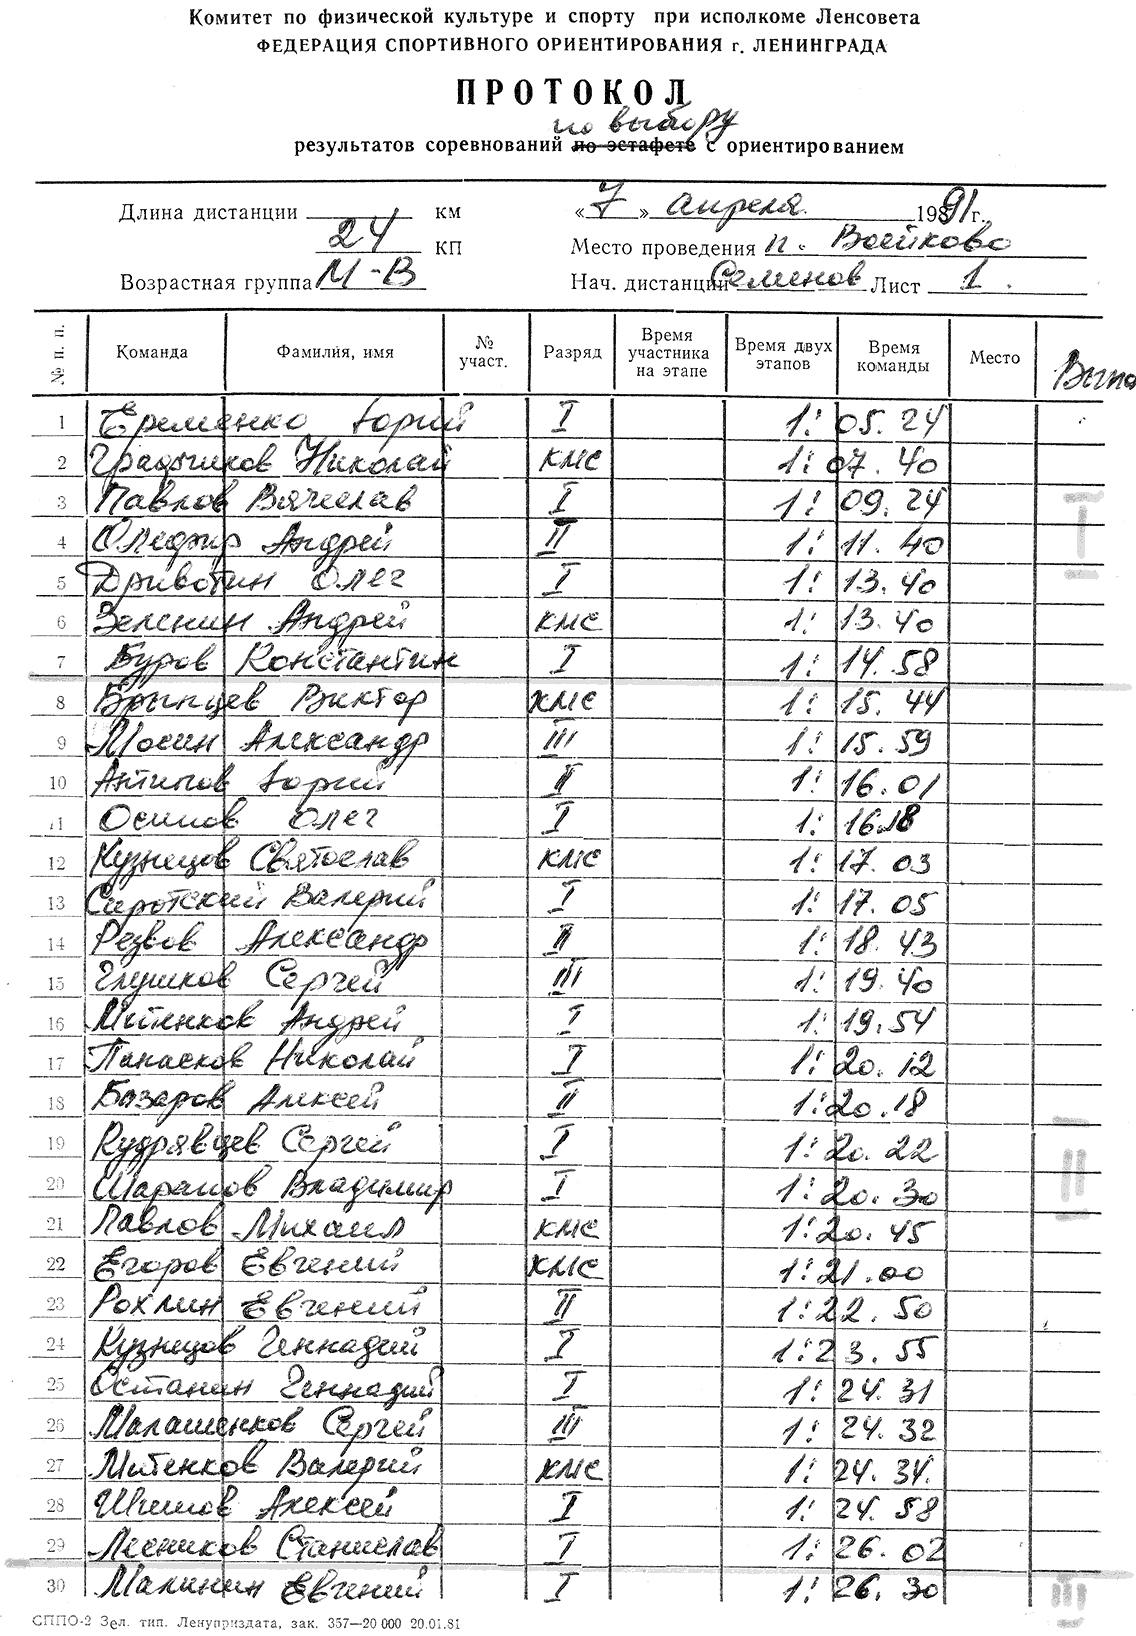 Комитет по физической культуре и спорту при исполкоме Ленсовета
ФЕДЕРАЦИЯ СПОРТИВНОГО ОРИЕНТИРОВАНИЯ г. ЛЕНИНГРАДА
ПРОТОКОЛ
по выбору
результатов соревнований по эстафете с ориентированием
Длина дистанции км «7» апреля 1991 г.
24 КП Место проведения п. Воейково
Возрастная группа М-В Нач. дистанции Семенов Лист 1.
№ п. п. Команда Фамилия, имя № участ. Разряд Время участника на этапе Время двух этапов Время команды Место Вып
1 Еременко Юрий I 1: 05. 24
2 Градычиков Николай КМС 1: 07. 40
3 Павлов Вячеслав I 1: 09. 24 I
4 Олефир Андрей II 1: 11. 40
5 Дривотин Олег I 1: 13. 40
6 Зеленин Андрей КМС 1: 13. 40
7 Буров Константин I 1: 14. 58
8 Брынцев Виктор КМС 1: 15. 44
9 Мосин Александр III 1: 15. 59
10 Антипов Юрий II 1: 16. 01
11 Осипов Олег I 1: 16.18
12 Кузнецов Святослав КМС 1: 17. 03
13 Сиротский Валерий I 1: 17. 05
14 Резвов Александр II 1: 18. 43
15 Глушков Сергей III 1: 19. 40
16 Митенков Андрей I 1: 19. 54
17 Панасков Николай I 1: 20. 12
18 Базаров Алексей II 1: 20. 18
19 Кудрявцев Сергей I 1: 20. 22
20 Шарапов Владимир I 1: 20. 30 II
21 Павлов Михаил КМС 1: 20. 45
22 Егоров Евгений КМС 1: 21. 00
23 Рохлин Евгений II 1: 22. 50
24 Кузнецов Геннадий I 1: 23. 55
25 Останин Геннадий I 1: 24. 31
26 Малашенков Сергей III 1: 24. 32
27 Митенков Валерий КМС 1: 24. 34.
28 Шипов Алексей I 1: 24. 58
29 Лесников Станислав I 1: 26. 02
30 Малинин Евгений I 1: 26. 30 III
СППО-2 Зел. тип. Ленуприздата, зак. 357—20 000 20.01.81